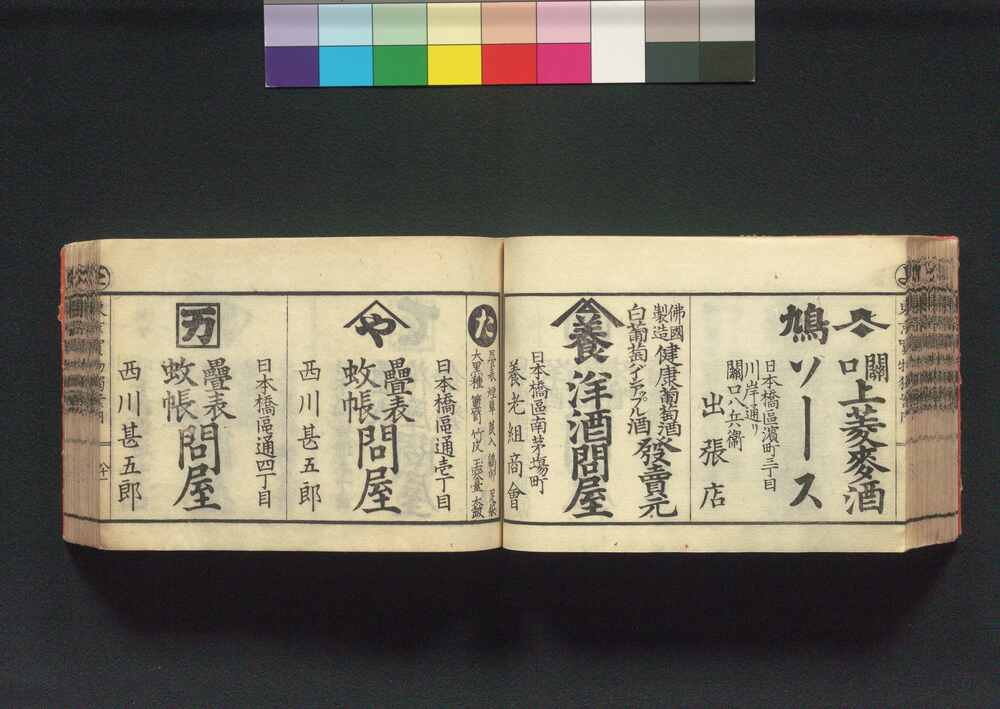 關口
上菱麥酒
鳩ソース
日本橋區濱町三丁目
川岸通り
關口八兵衞
出張店
佛國
製造
健康葡萄酒
白葡萄パインアップル酒
發賣元
養
洋酒問屋
日本橋區南茅場町
養老組商會
た
日本橋區通壱丁目
や
疊表
蚊帳
問屋
西川甚五郎
日本橋區通四丁目
万
疊表
蚊帳
問屋
西川甚五郎